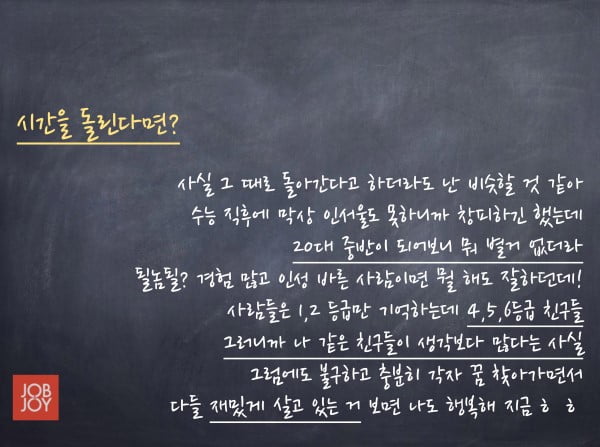 시간을 돌린다면?
사실 그 때로 돌아간다고 하더라도 난 비슷할 것 같아
수능 직후에 막상 인서울도 못하니까 창피하긴 했는데
20대 중반이 되어보니 뭐 별거 없더라
될놈될? 경험 많고 인성 바른 사람이면 뭘 해도 잘하던데!
사람들은 1,2 등급만 기억하는데 4,5,6등급 친구들
그러니까 나 같은 친구들이 생각보다 많다는 사실
그럼에도 불구하고 충분히 각자 꿈 찾아가면서
다들 재밌게 살고 있는 거 보면 나도 행복해 지금 ㅎ ㅎ
JOB
JOY